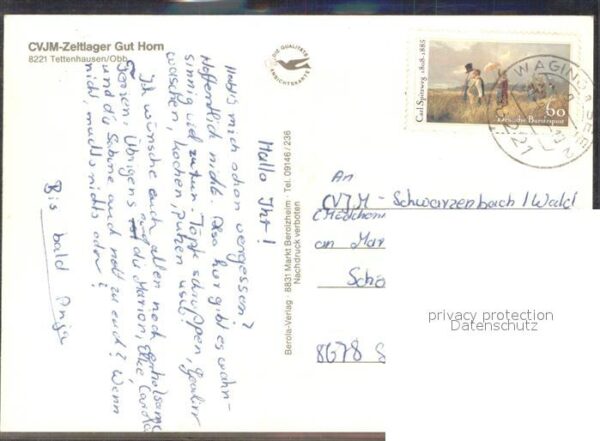 CVJM-Zeltlager Gut Horn
8221 Tettenhausen/Obb.
DIE QUALITÄTS
ANSICHTSKARTE
Berola-Verlag · 8831 Markt Berolzheim · Tel. 09146 / 236
Nachdruck verboten
Carl Spitzweg 1808-1885
60
Deutsche Bundespost
WAGING A SEE
8221
Hallo Ihr!
Habt's mich schon vergessen?
Hoffentlich nicht. Also hier gibt es wahn-
sinnig viel zu tun. Topf schruppen, Geschirr
waschen, kochen, putzen usw.
Ich wünsche euch allen noch erholsame
Ferien. Übrigens ist die Marion, Elke, Carola
und die Sabine auch noch zu euch? Wenn
nicht, macht's nichts oder?
Bis bald Anja
An
CVJM - Schwarzenbach/Wald
an Mar
Schö
8678 S
privacy protection
Datenschutz